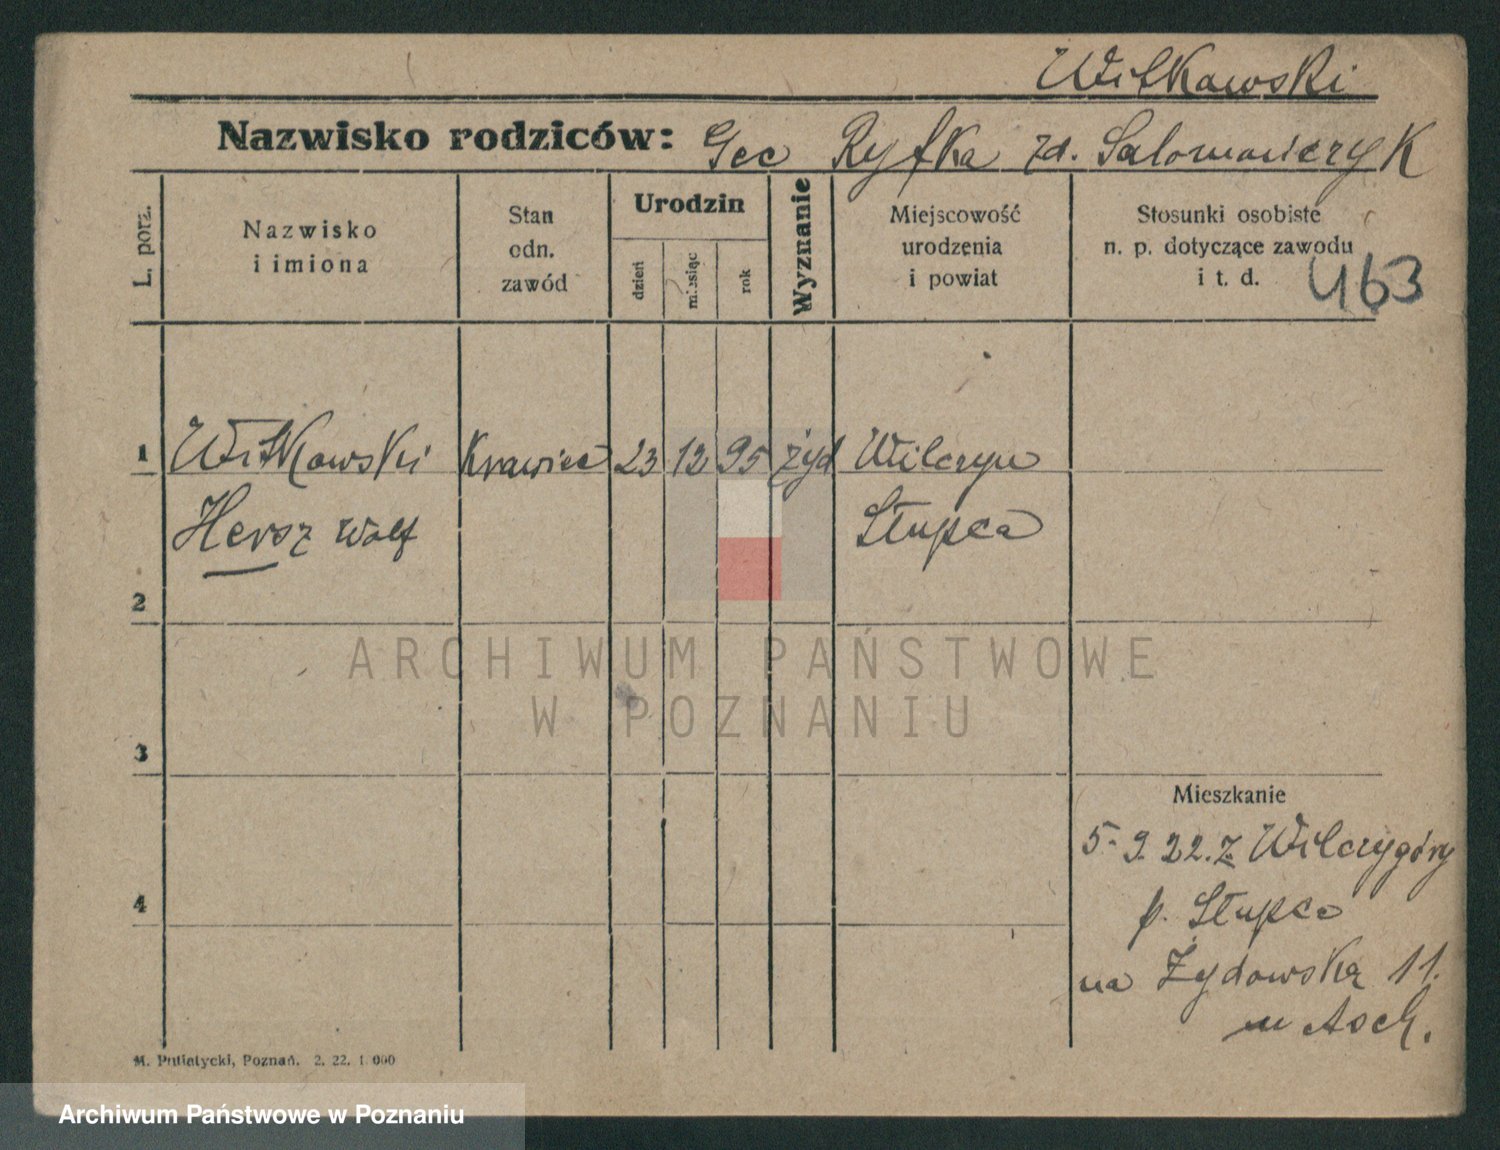 Witkowski
Nazwisko rodziców: Gec Ryfka zd. Salomończyk
L. porz.
Nazwisko
i imiona
Stan
odn.
zawód
Urodzin
dzień
miesiąc
rok
Wyznanie
Miejscowość
urodzenia
i powiat
Stosunki osobiste
n. p. dotyczące zawodu
i t. d.
463
1 Witkowski Krawiec 23 12 95 żyd Wilczyn
Hersz Wolf Słupca
2
3
4
ARCHIWUM PAŃSTWOWE
W POZNANIU
Mieszkanie
5. 9. 22. Z Wilczygóry
p. Słupca
na Żydowską 11.
u Asch.
M. Putiatycki, Poznań. 2. 22. 1 000
Archiwum Państwowe w Poznaniu